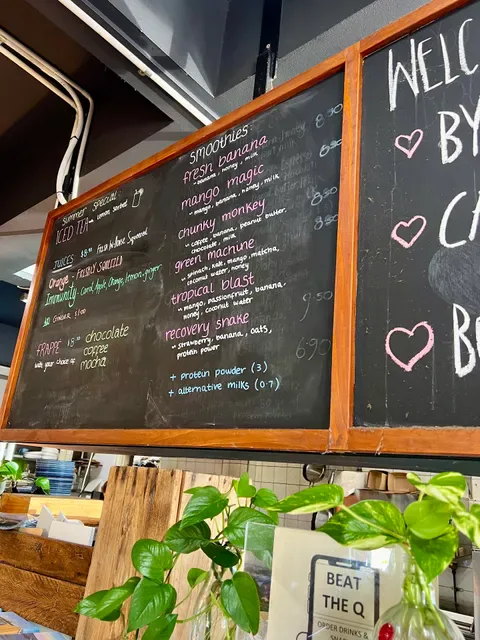 Summer Special
ICED TEA - Lemon, sorbet
JUICES $8.50 Fresh In-House Squeezed
Orange - FRESHLY SQUEEZED
Immunity - Carrot, Apple, Orange, Lemon, ginger
GINGER $1.00
FRAPPE $8.50 chocolate
with your choice of coffee
mocha
smoothies
fresh banana 8.90
banana, honey, milk
mango magic 8.90
mango, banana, honey, milk
chunky monkey 8.90
coffee, banana, peanut butter,
chocolate, milk
green machine
spinach, kale, mango, matcha,
coconut water, honey
tropical blast 9.50
mango, passionfruit, banana,
honey, coconut water
recovery shake 6.90
strawberry, banana, oats,
protein power
+ protein powder (3)
+ alternative milks (0.7)
WELC
BY
CA
B
BEAT
THE Q
ORDER DRINKS &